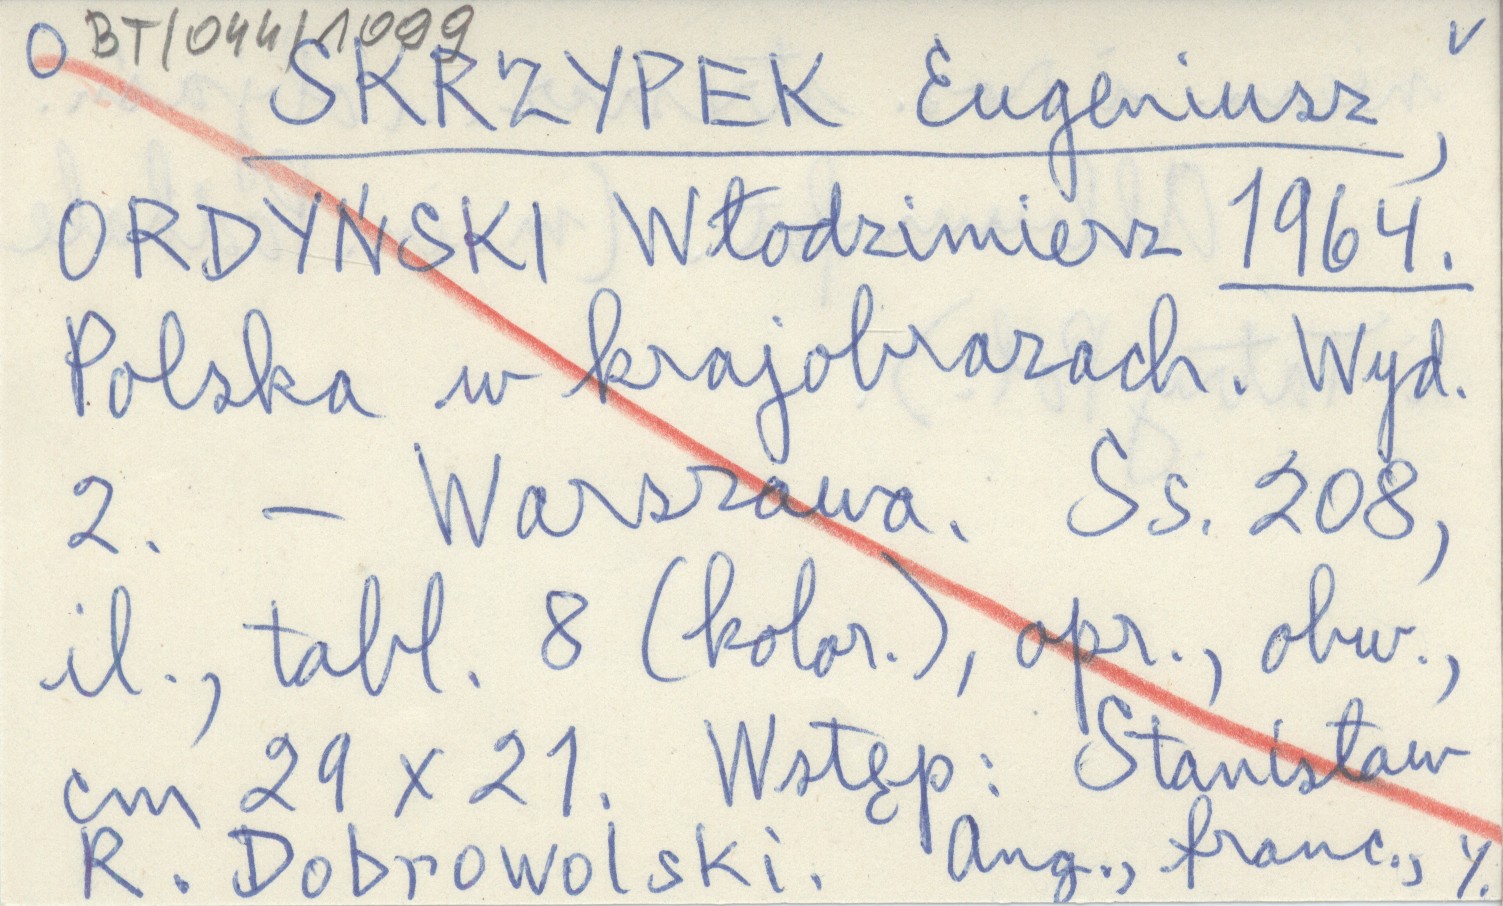 O BT/044/1099 v
SKRZYPEK Eugeniusz,
ORDYŃSKI Włodzimierz 1964.
Polska w krajobrazach. Wyd.
2. – Warszawa. Ss. 208,
il., tabl. 8 (kolor.), opr., obw.,
cm 29 x 21. Wstęp: Stanisław
R. Dobrowolski. Ang., franc.,